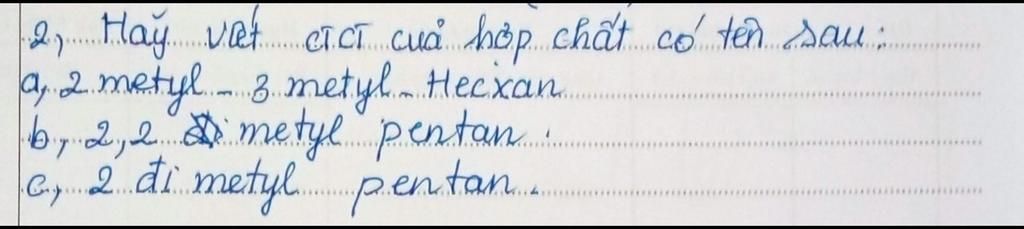 2, Haỹ viết CTCT cuả hợp chất có tên sau:
a, 2 metyl - 3 metyl - Hecxan
b, 2,2 đi metyl pentan.
c, 2 đi metyl pentan.